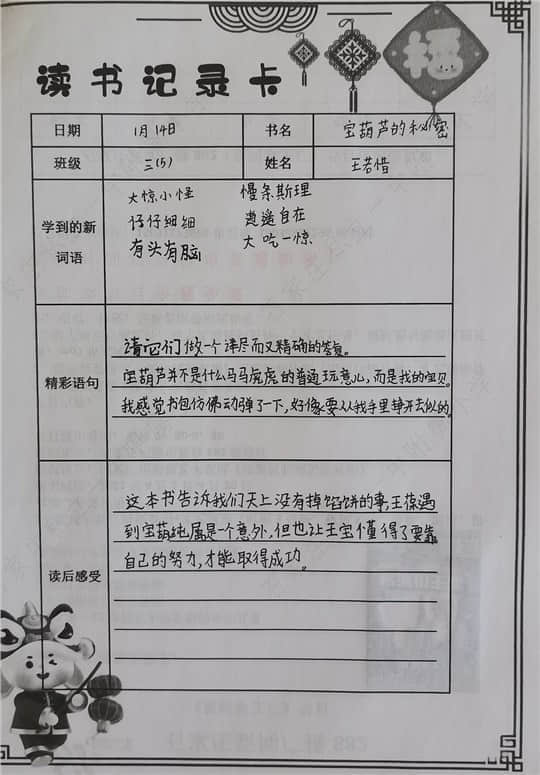 福
读书记录卡
日期 1月14日 书名 宝葫芦的秘密
班级 三(5) 姓名 王若惜
学到的新词语
大惊小怪 慢条斯理
仔仔细细 逍遥自在
有头有脑 大吃一惊
精彩语句
请它们做一个详尽而又精确的答复。
宝葫芦并不是什么马马虎虎的普通玩意儿,而是我的宝贝。
我感觉书包仿佛动弹了一下,好像要从我手里挣开去似的。
读后感受
这本书告诉我们天上没有掉馅饼的事,王葆遇
到宝葫芦纯属是个意外,但也让王宝懂得了要靠
自己的努力,才能取得成功。